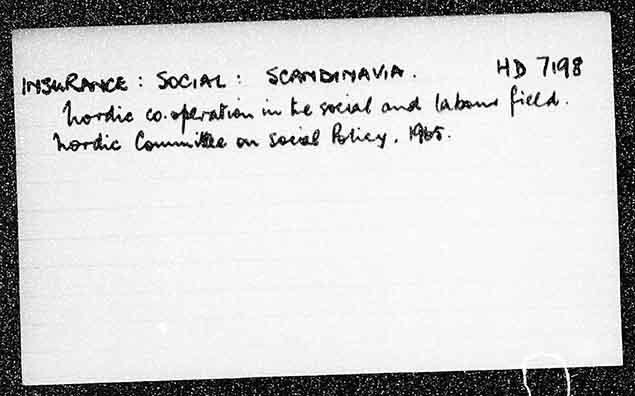 INSURANCE : SOCIAL : SCANDINAVIA. HD 7198
Nordic co-operation in the social and labour field.
Nordic Committee on Social Policy. 1965.